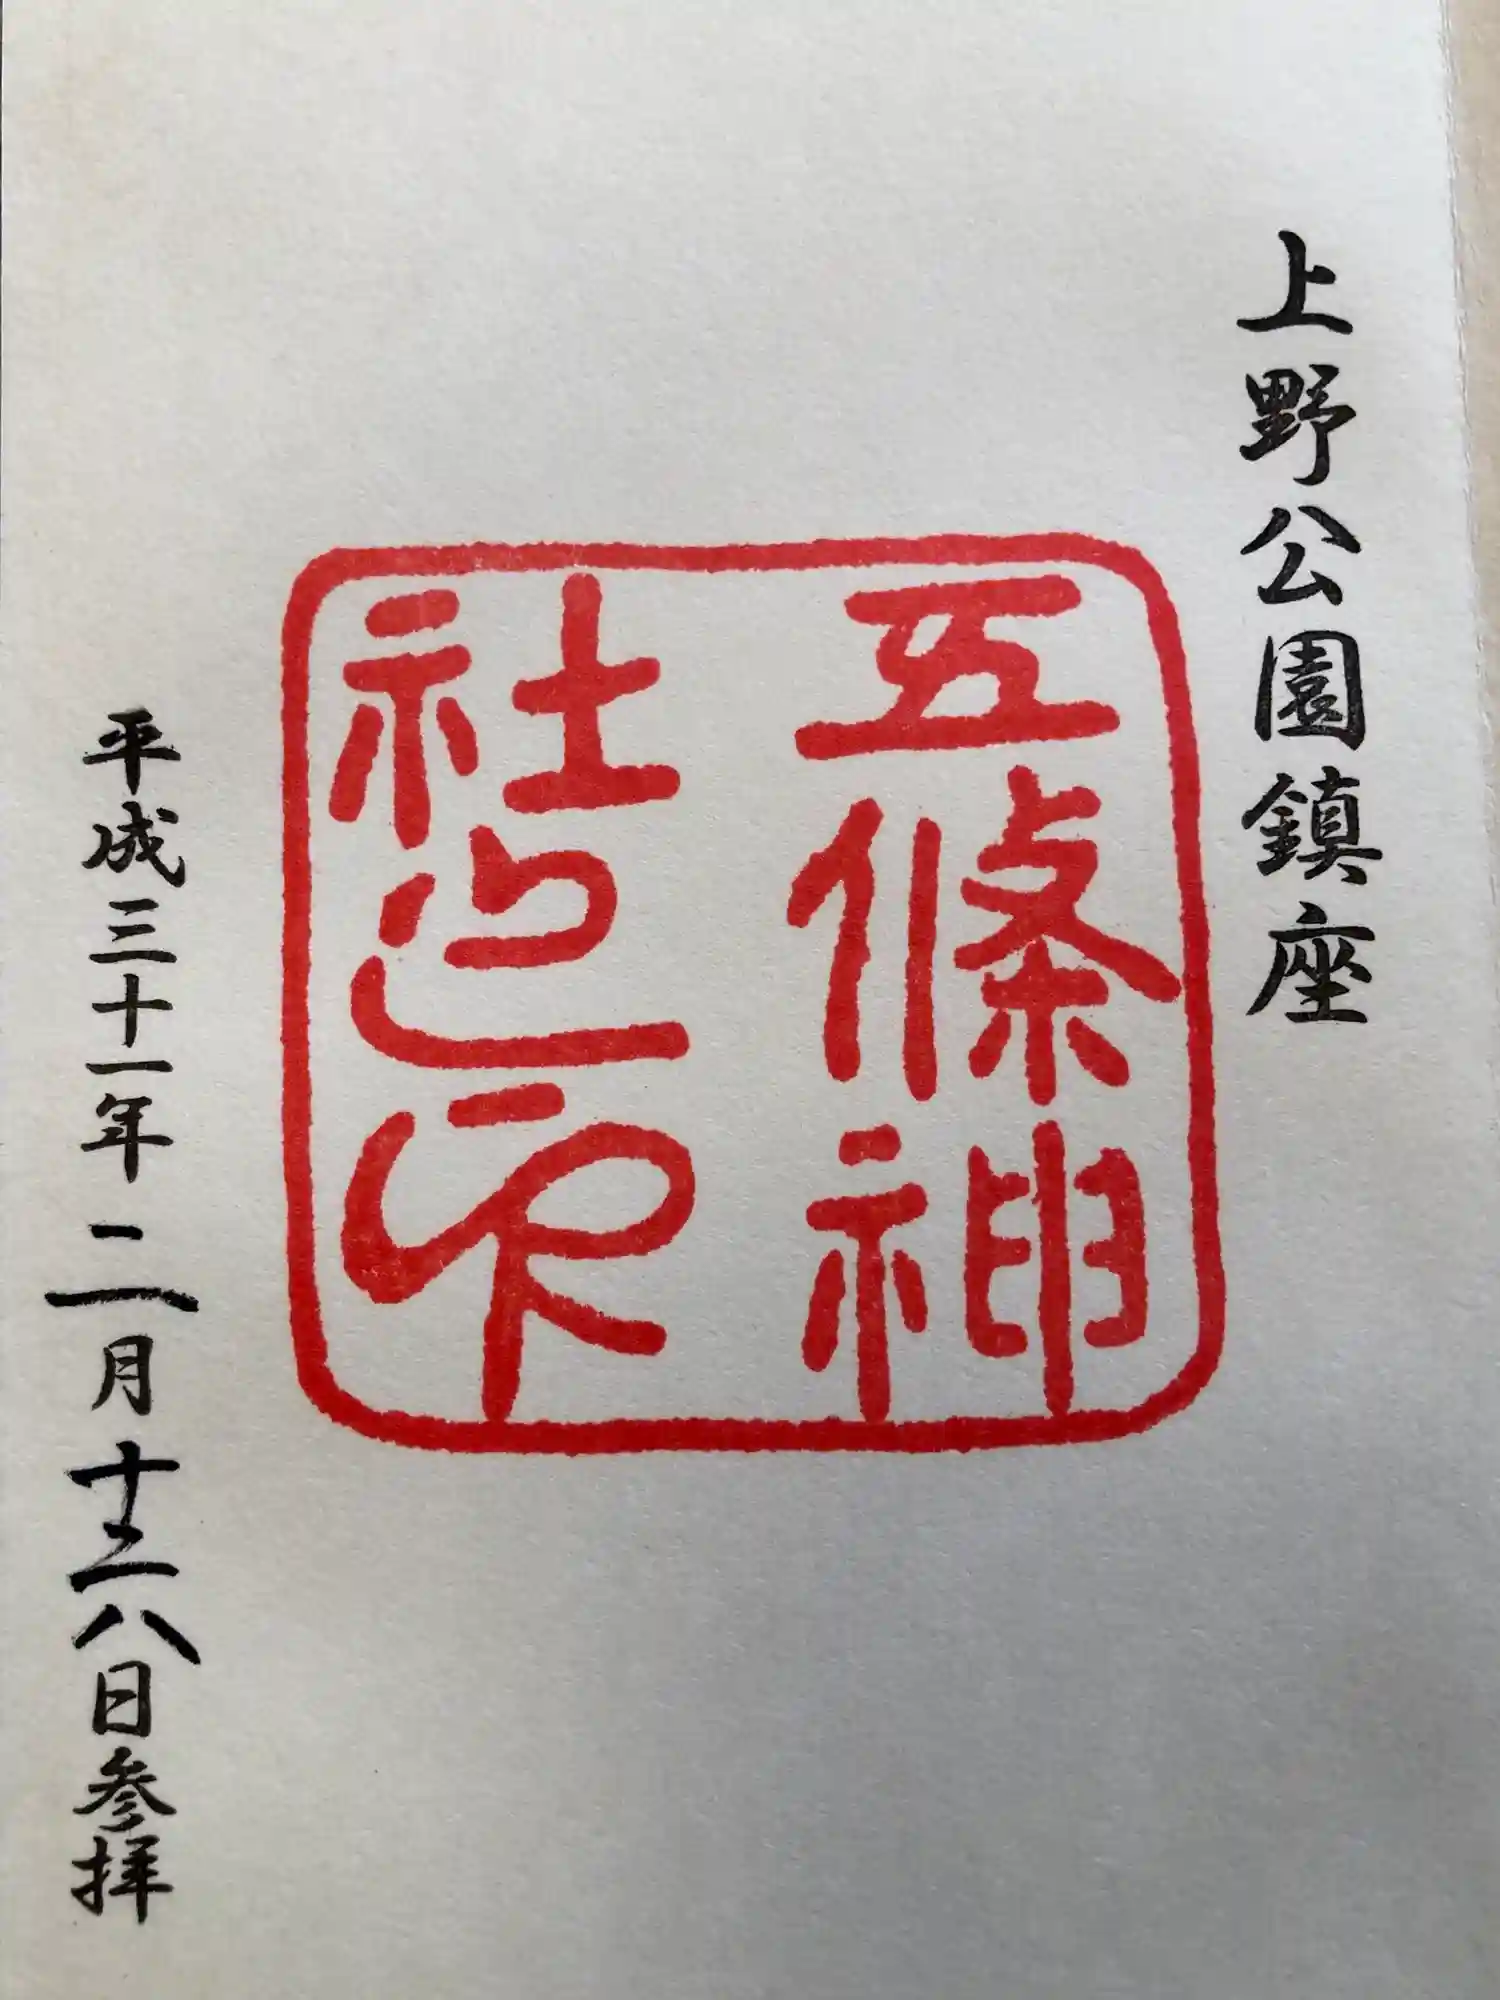 上野公園鎮座
五條神
社之印
平成三十一年二月十六日参拝